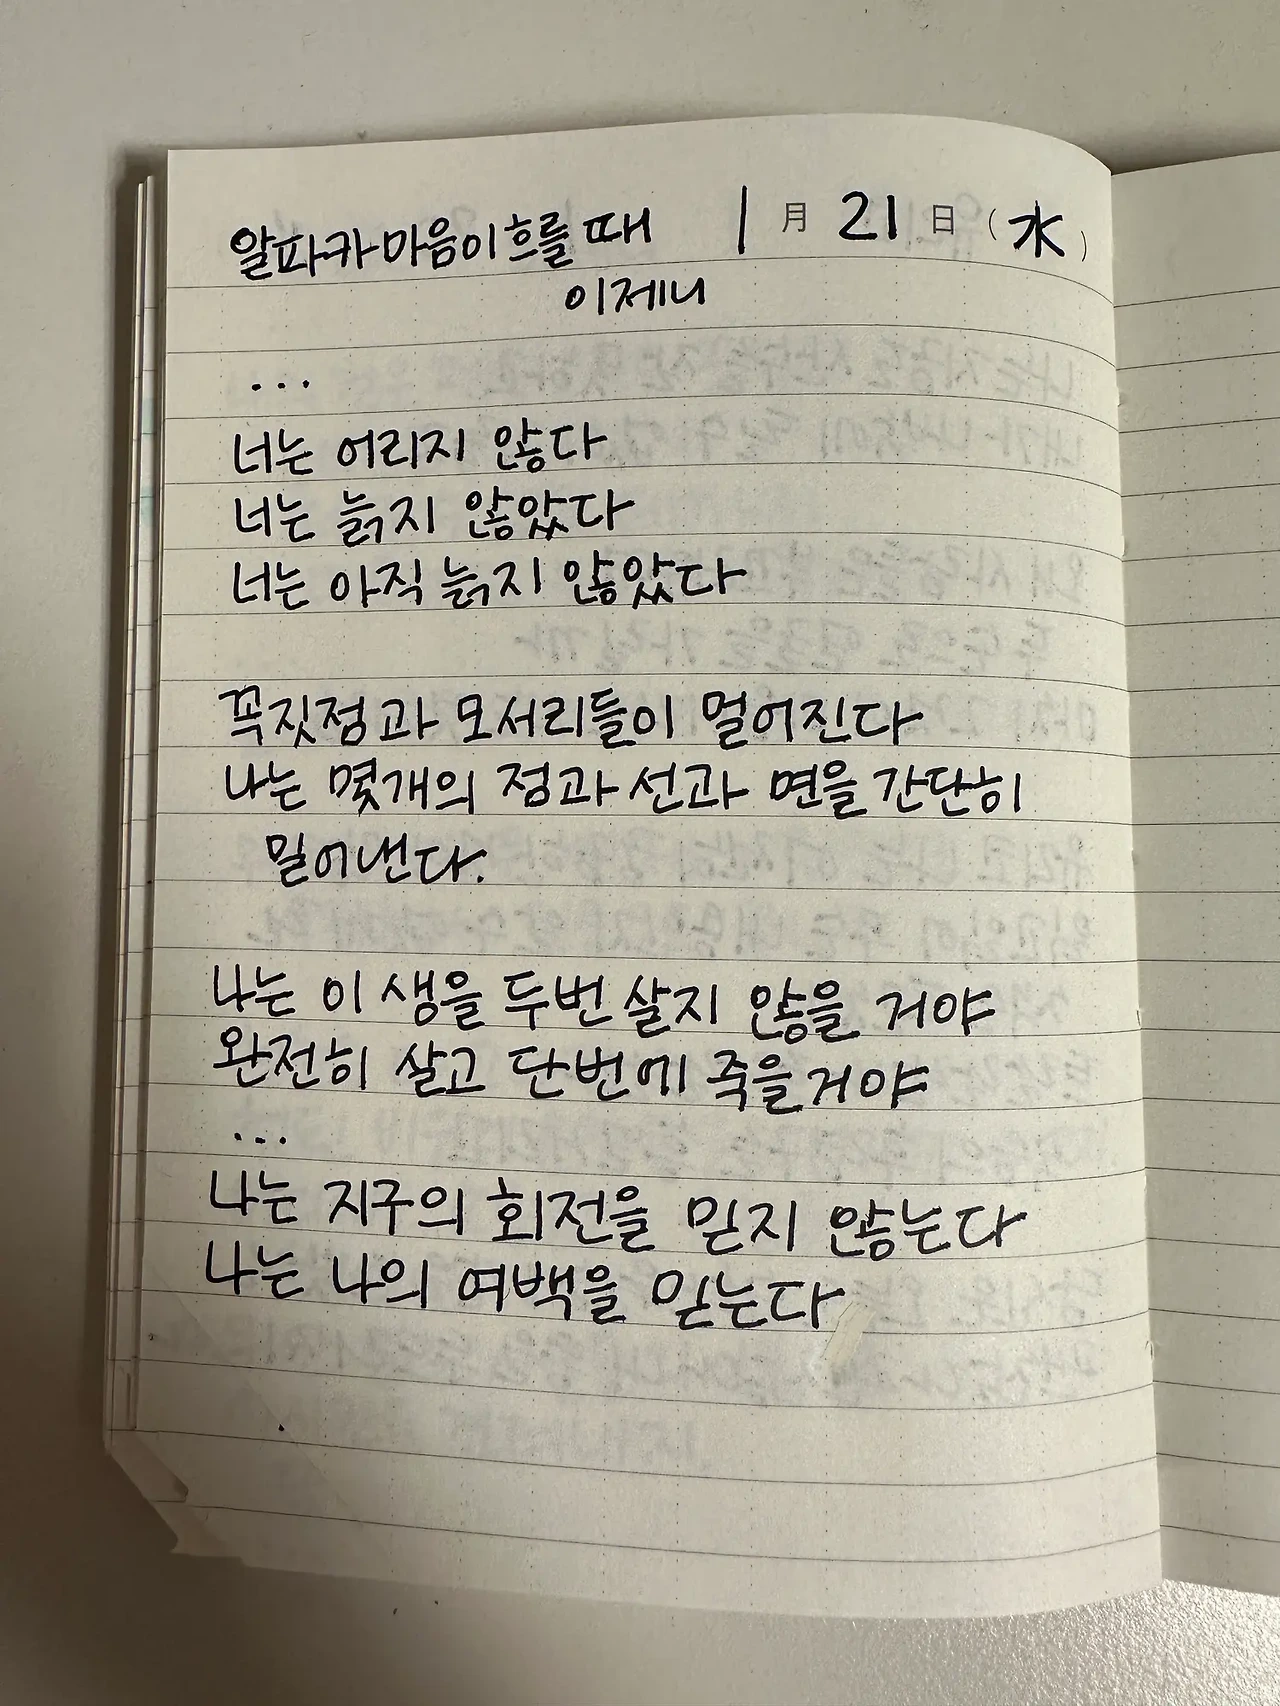 알파카 마음이 흐를 때 1月 21日 (水)
이제니
...
너는 어리지 않다
너는 늙지 않았다
너는 아직 늙지 않았다
꼭짓점과 모서리들이 멀어진다
나는 몇개의 점과 선과 면을 간단히
밀어낸다.
나는 이 생을 두번 살지 않을 거야
완전히 살고 단번에 죽을거야
...
나는 지구의 회전을 믿지 않는다
나는 나의 여백을 믿는다